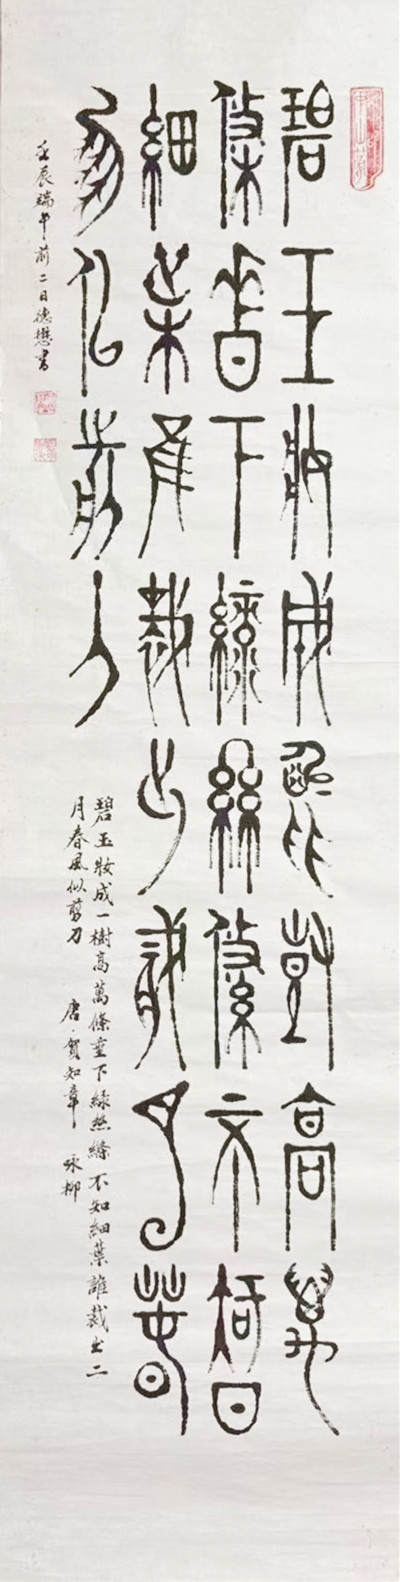 碧玉妝成一樹高萬
條垂下綠絲絛不知
細葉誰裁出二月春
風似剪刀
碧玉妝成一樹高萬條垂下綠絲絛不知細葉誰裁出二
月春風似剪刀 唐·賀知章 咏柳
壬辰端午前二日德懋書